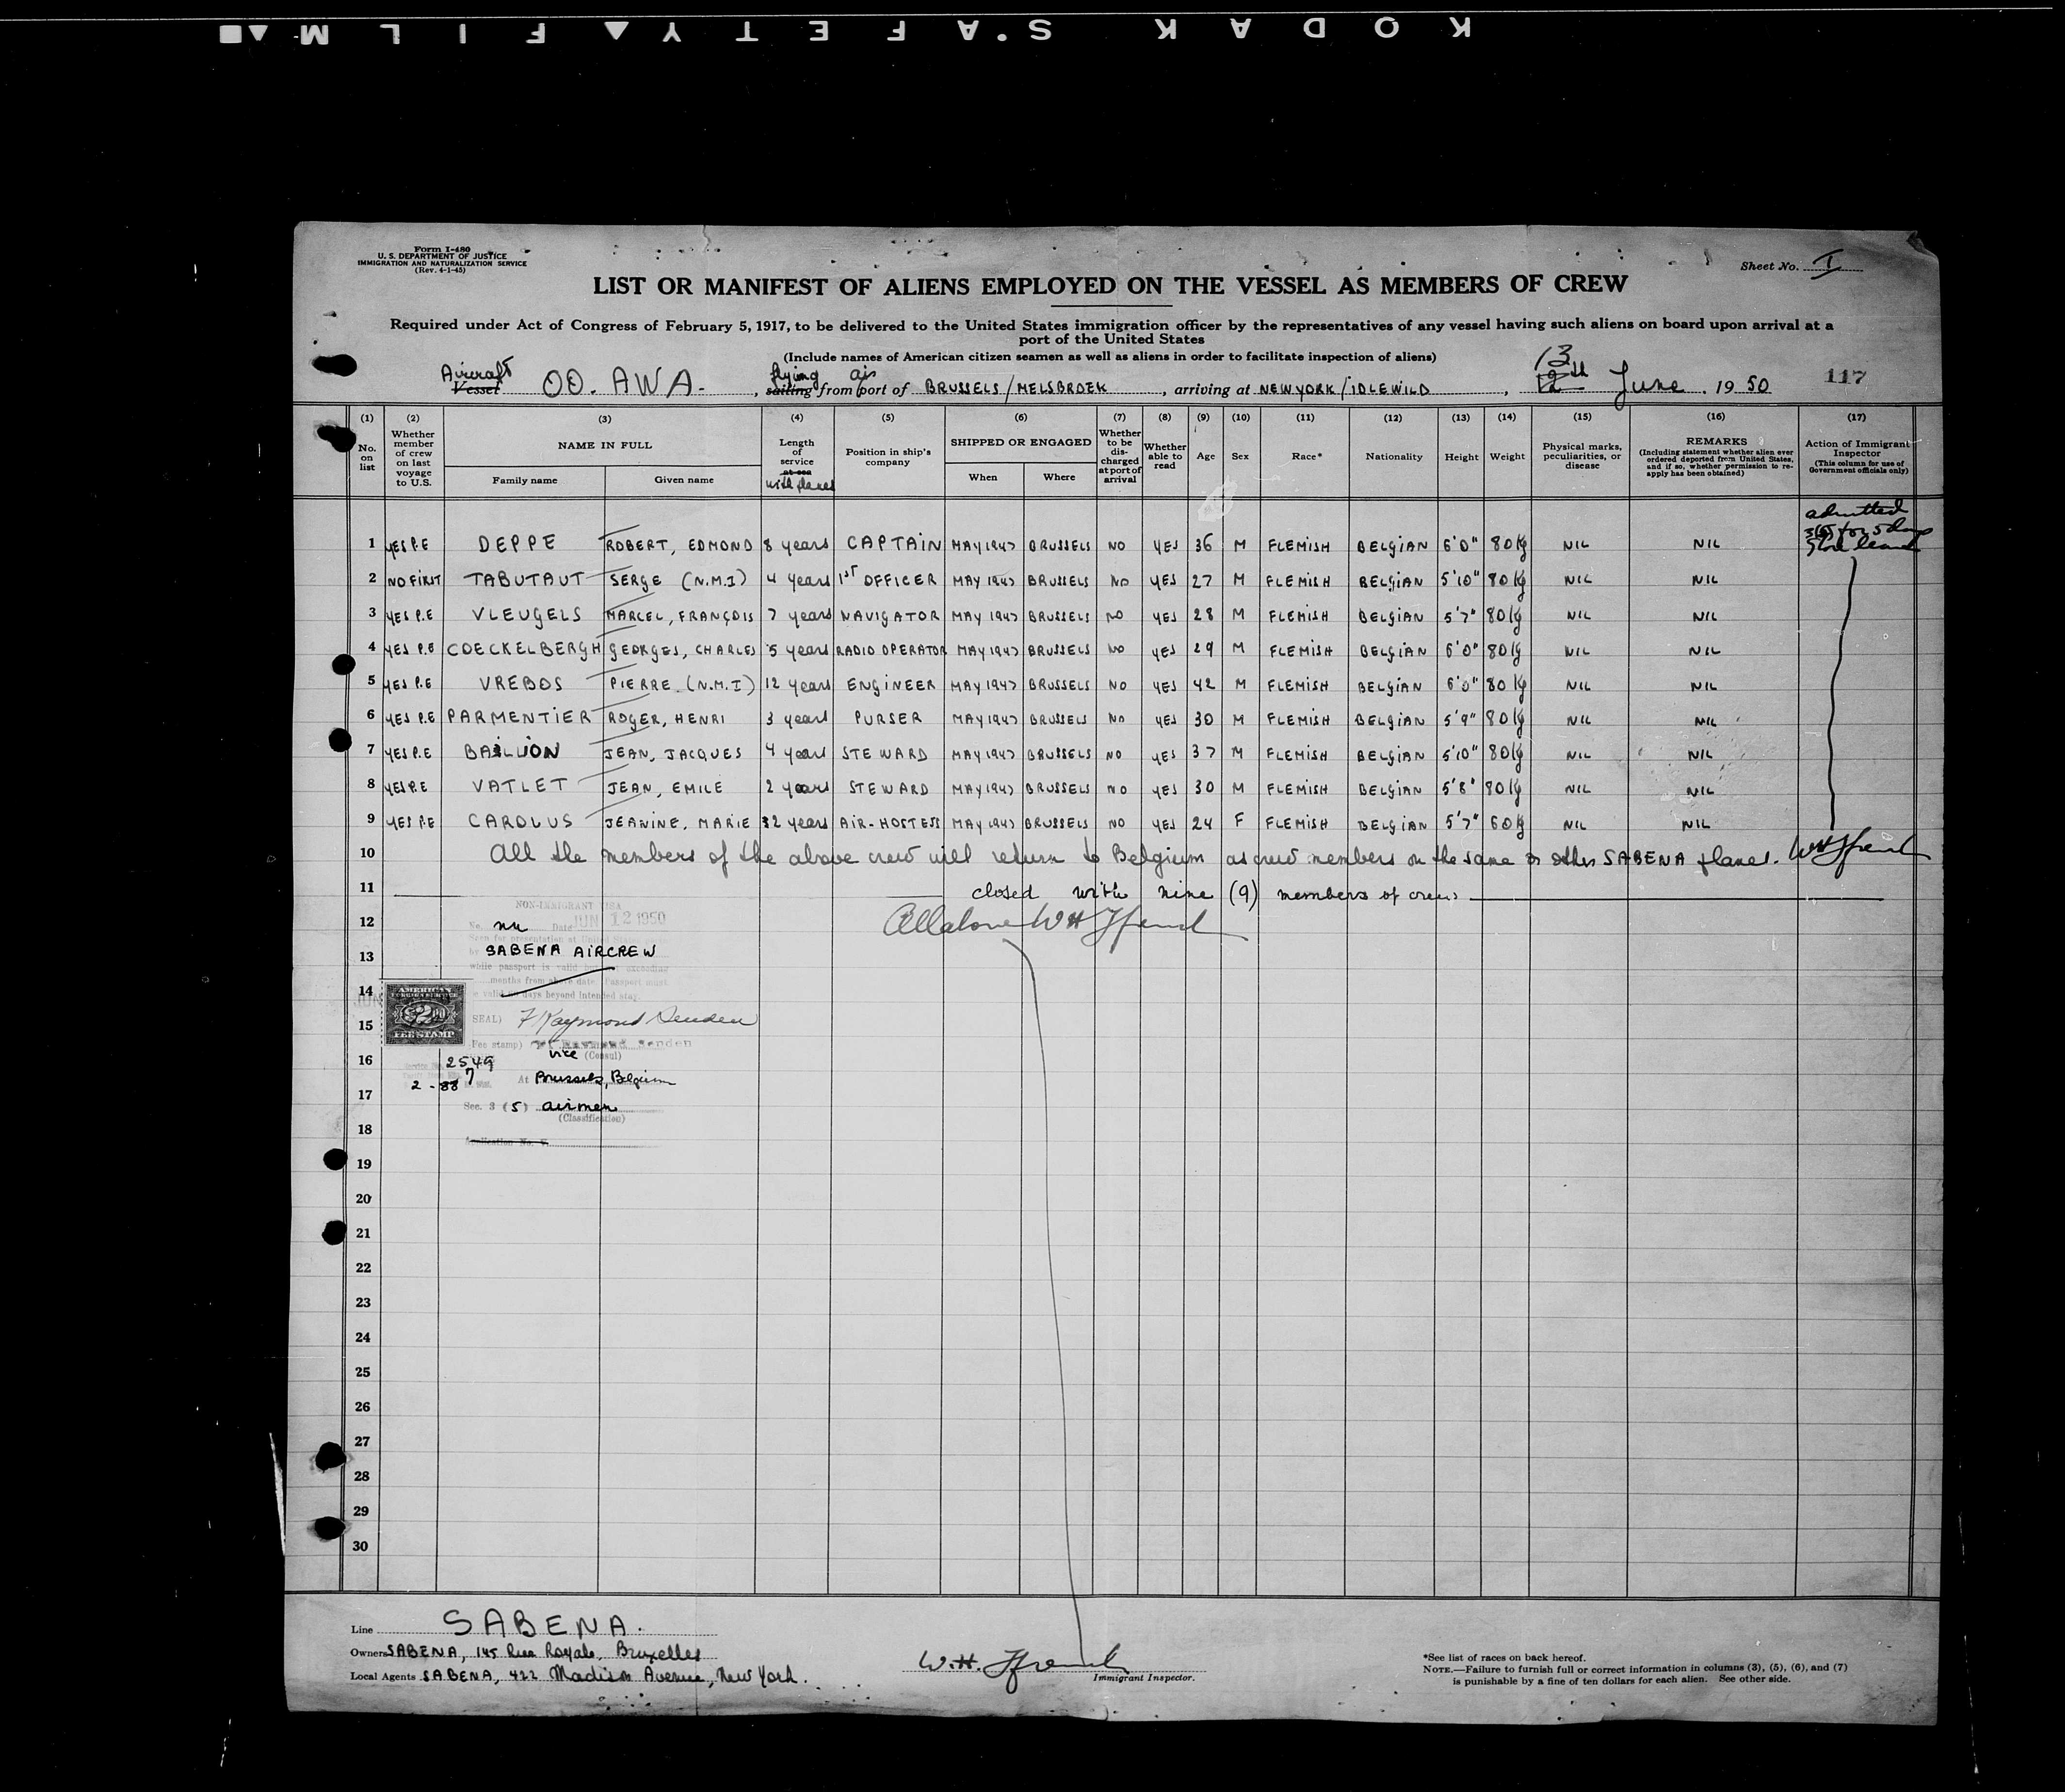 KODAK SAFETY FILM
Form I-480
U. S. DEPARTMENT OF JUSTICE
IMMIGRATION AND NATURALIZATION SERVICE
(Rev. 4-1-45)
Sheet No. I
LIST OR MANIFEST OF ALIENS EMPLOYED ON THE VESSEL AS MEMBERS OF CREW
Required under Act of Congress of February 5, 1917, to be delivered to the United States immigration officer by the representatives of any vessel having such aliens on board upon arrival at a
port of the United States
(Include names of American citizen seamen as well as aliens in order to facilitate inspection of aliens)
Aircraft flying air 13
Vessel OO. AWA. , sailing from port of BRUSSELS/MELSBROEK , arriving at NEW YORK/IDLEWILD , 12th June , 19 50 117
(1) (2) (3) (4) (5) (6) (7) (8) (9) (10) (11) (12) (13) (14) (15) (16) (17)
No. on list Whether member of crew on last voyage to U.S. NAME IN FULL Family name Given name Length of service at sea with planes Position in ship's company SHIPPED OR ENGAGED When Where Whether to be discharged at port of arrival Whether able to read Age Sex Race* Nationality Height Weight Physical marks, peculiarities, or disease REMARKS (Including statement whether alien ever ordered deported from United States, and if so, whether permission to reapply has been obtained) Action of Immigrant Inspector (This column for use of Government officials only)
admitted
3(5) for 5 days
shore leave
1 YES P.E DEPPE ROBERT, EDMOND 8 years CAPTAIN MAY 1947 BRUSSELS NO YES 36 M FLEMISH BELGIAN 6'0" 80 Kg NIL NIL
2 NO FIRST TABUTAUT SERGE (N.M.I) 4 years 1ST OFFICER MAY 1947 BRUSSELS NO YES 27 M FLEMISH BELGIAN 5'10" 80 Kg NIL NIL
3 YES P.E VLEUGELS MARCEL, FRANÇOIS 7 years NAVIGATOR MAY 1947 BRUSSELS NO YES 28 M FLEMISH BELGIAN 5'7" 80 Kg NIL NIL
4 YES P.E COECKELBERGH GEORGES, CHARLES 5 years RADIO OPERATOR MAY 1947 BRUSSELS NO YES 29 M FLEMISH BELGIAN 6'0" 80 Kg NIL NIL
5 YES P.E VREBOS PIERRE (N.M.I) 12 years ENGINEER MAY 1947 BRUSSELS NO YES 42 M FLEMISH BELGIAN 6'0" 80 Kg NIL NIL
6 YES P.E PARMENTIER ROGER, HENRI 3 years PURSER MAY 1947 BRUSSELS NO YES 30 M FLEMISH BELGIAN 5'9" 80 Kg NIL NIL
7 YES P.E BAILLION JEAN, JACQUES 4 years STEWARD MAY 1947 BRUSSELS NO YES 37 M FLEMISH BELGIAN 5'10" 80 Kg NIL NIL
8 YES P.E VATLET JEAN, EMILE 2 years STEWARD MAY 1947 BRUSSELS NO YES 30 M FLEMISH BELGIAN 5'8" 80 Kg NIL NIL
9 YES P.E CAROLUS JEANINE, MARIE 2 years AIR-HOSTESS MAY 1947 BRUSSELS NO YES 24 F FLEMISH BELGIAN 5'7" 60 Kg NIL NIL
10 All the members of the above crew will return to Belgium as crew members on the same or other SABENA planes.
11 closed with nine (9) members of crew
NON-IMMIGRANT VISA
12 No. Date JUN 12 1950 All above
Seen for presentation at United States
13 SABENA AIRCREW
while passport is valid
months from above date. Passport must
14 be valid days beyond intended stay.
AMERICAN FOREIGN SERVICE $2.00 FEE STAMP
15 SEAL) F Raymond Senden
(Fee stamp) F. Raymond Senden
16 2549 Vice (Consul)
2 - 88 7 At Brussels, Belgium
17 Sec. 3 (5) airmen
(Classification)
18 Application No. V.
19
20
21
22
23
24
25
26
27
28
29
30
Line SABENA.
Owners SABENA, 145 Rue Royale, Bruxelles
Local Agents SABENA, 422 Madison Avenue, New York.
W.H.
Immigrant Inspector.
*See list of races on back hereof.
NOTE.—Failure to furnish full or correct information in columns (3), (5), (6), and (7)
is punishable by a fine of ten dollars for each alien. See other side.